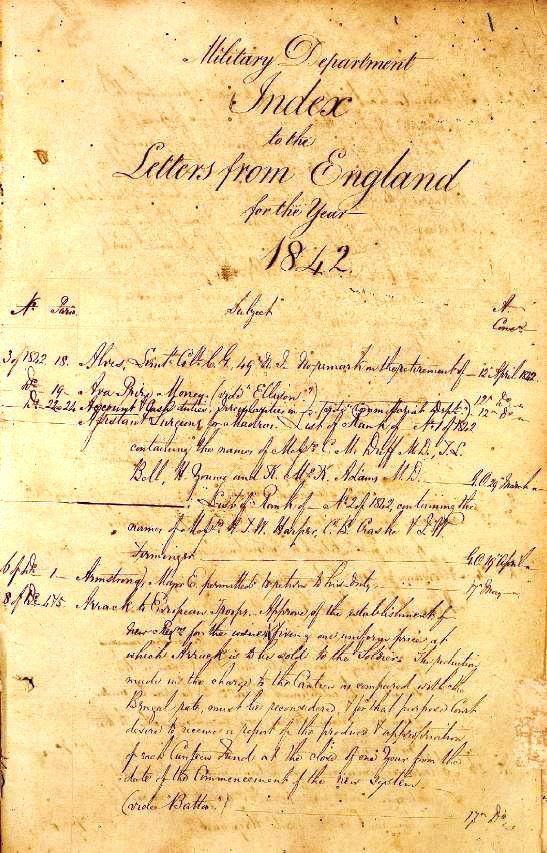 Military Department
Index
to the
Letters from England
for the Year
1842.
No. Para. Subject A. Cons.
3 of 1842. 18. Alves, Lieut. Coll. C. G., 49 N. I. No remark on the retirement of 12 April 1842
Do 19 Ava Prize Money (vide "Ellison") 12 Do
Do 22-24 Account & Cash duties, irregularities in (vide "Commissariat Dept.") 12 Do
Assistant Surgeons for Madras. List of Rank of No. 1 of 1842
containing the names of Messrs. C. M. Duff M.D., J. L.
Bell, H. Young and K. McK. Adams M.D. G.O. 29 March
List of Rank of No. 2 of 1842, containing the
names of Messrs. J. W. Harper, C. B. Crashe & J. W.
G.O. 19 April
6 of Do 1 Armstrong, Major E. permitted to return to his duty. 17 May
8 of Do 475 Arrack to European Troops. Approve of the establishment of
new for the fixing one uniform price at
which Arrack is to be sold to the Soldiers. The reduction
made in the charge to the Canteen as compared with the
Bengal rate, must be reconsidered, & for that purpose Court
desire to receive a report of the produce & appropriation
of each Canteen Fund at the close of one Year from the
date of the Commencement of the new System.
(vide "Batta") 17 Do